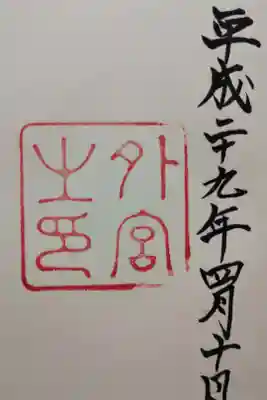 平成二十九年四月十日
外宮
之印